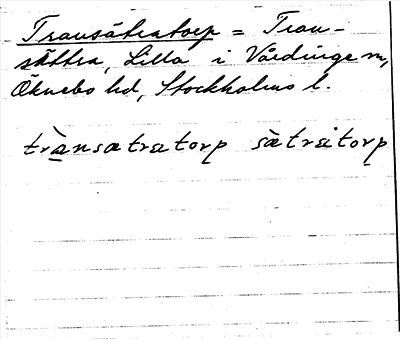 Transätratorp = Tran-
sättra, Lilla i Vårdinge sn,
Öknebo hd, Stockholms l.
trànsætratorp sætratorp